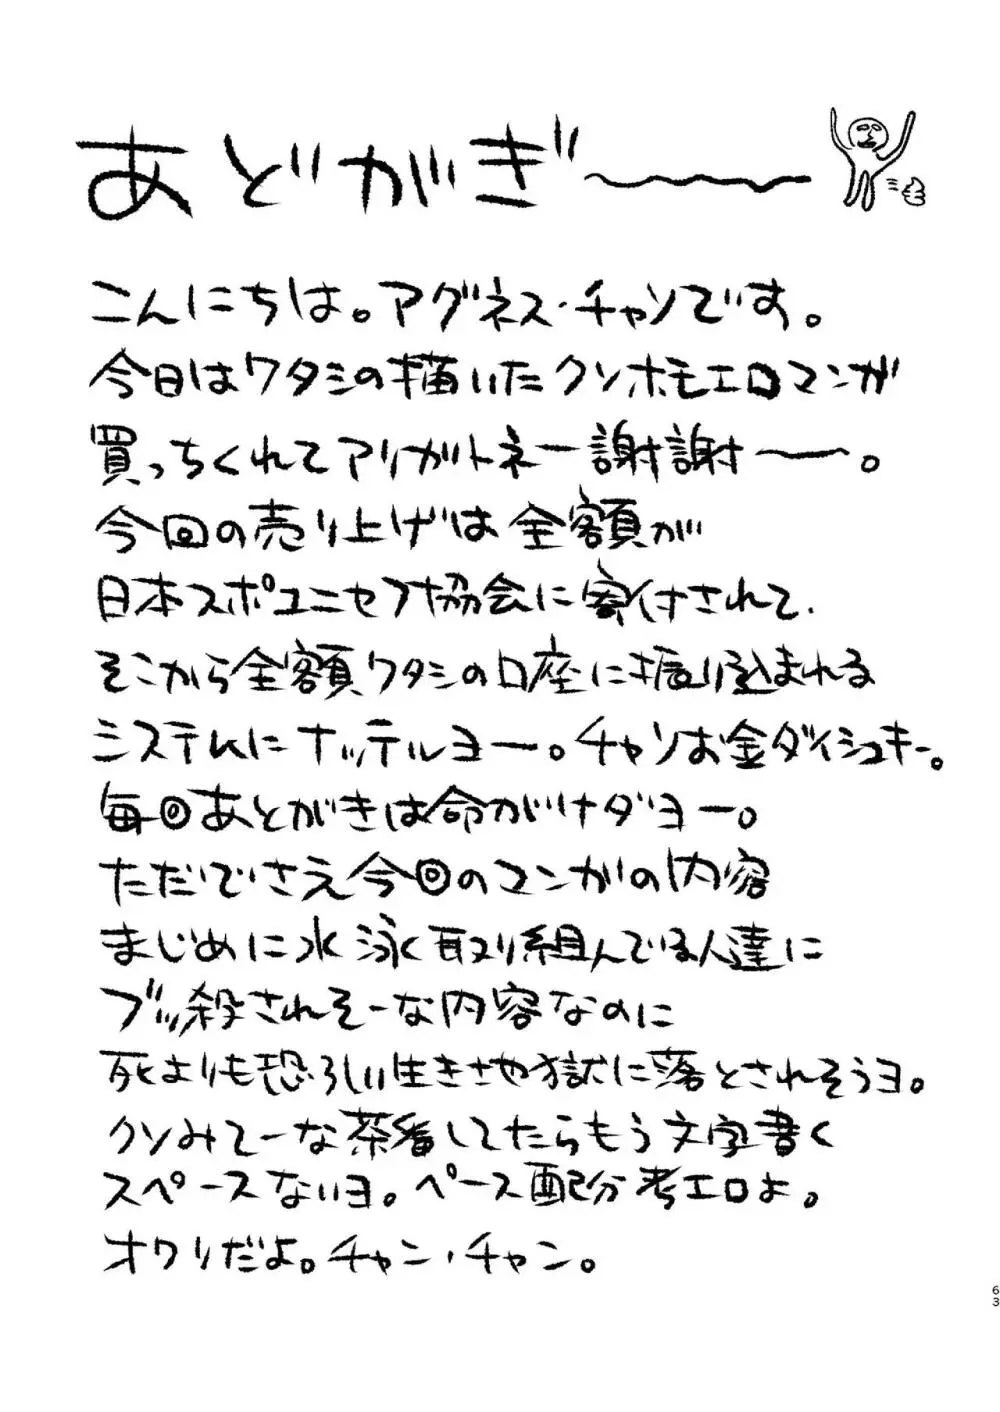 あどがぎ〜〜〜
こんにちは。アグネス・チャンです。
今日はワタシの描いたクソホモエロマンガ
買っちくれてアリガトネー謝謝ー〜。
今回の売り上げは全額が
日本スポユニセフ協会に寄付されて、
そこから全額ワタシの口座に振り込まれる
システムにナッテルヨー。チャンお金ダイシュキー。
毎回あとがきは命がけダヨー。
ただでさえ今回のマンガの内容
まじめに水泳取り組んでいる人達に
ブッ殺されそーな内容なのに
死よりも恐ろしい生き地獄に落とされそうヨ。
クソみてーな茶番してたらもう文字書く
スペースないヨ。ペース配分考エロよ。
オワリだよ。チャン・チャン。
63